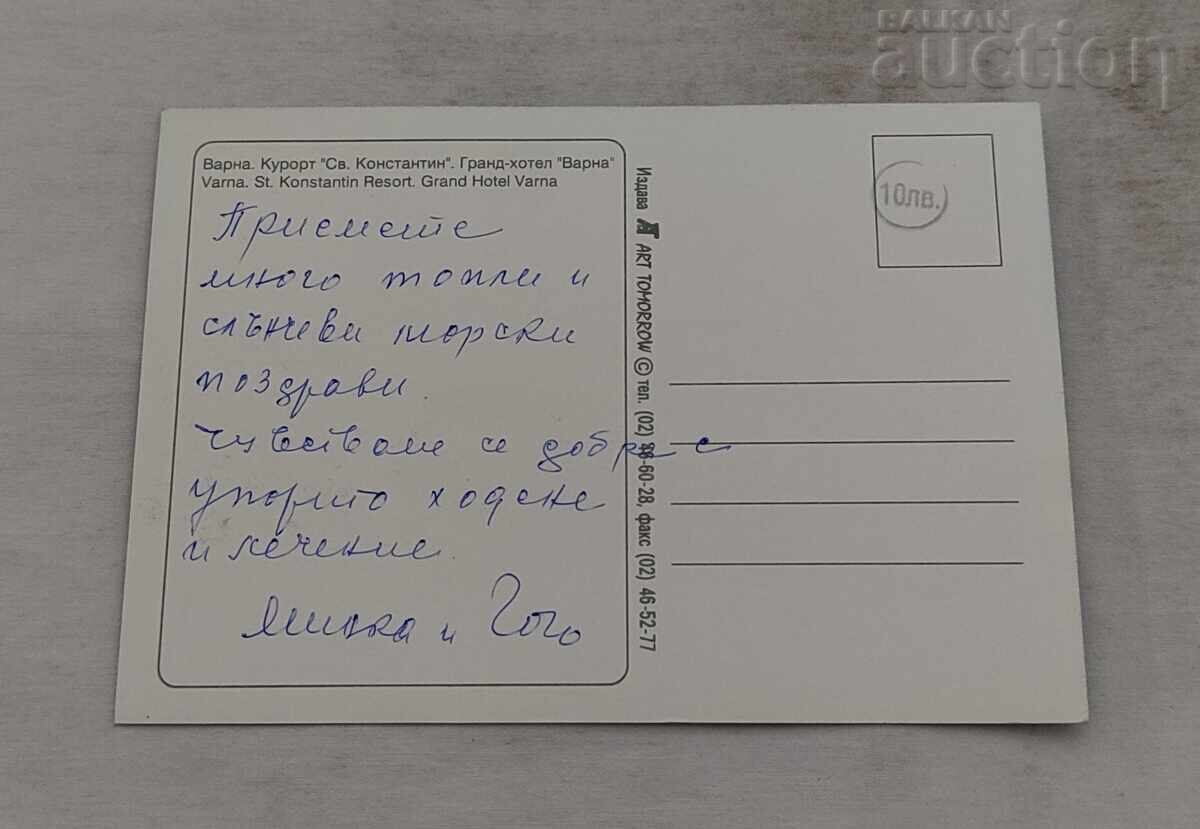 BALKAN
auction
Варна. Курорт "Св. Константин". Гранд-хотел "Варна"
Varna. St. Konstantin Resort. Grand Hotel Varna
Приемете
много топли и
слънчеви морски
поздрави.
Чувстваме се добре с
упорито ходене
и лечение.
и Гого
Издава AT ART TOMORROW © тел. (02) 88-60-28, факс (02) 46-52-77
10лв.